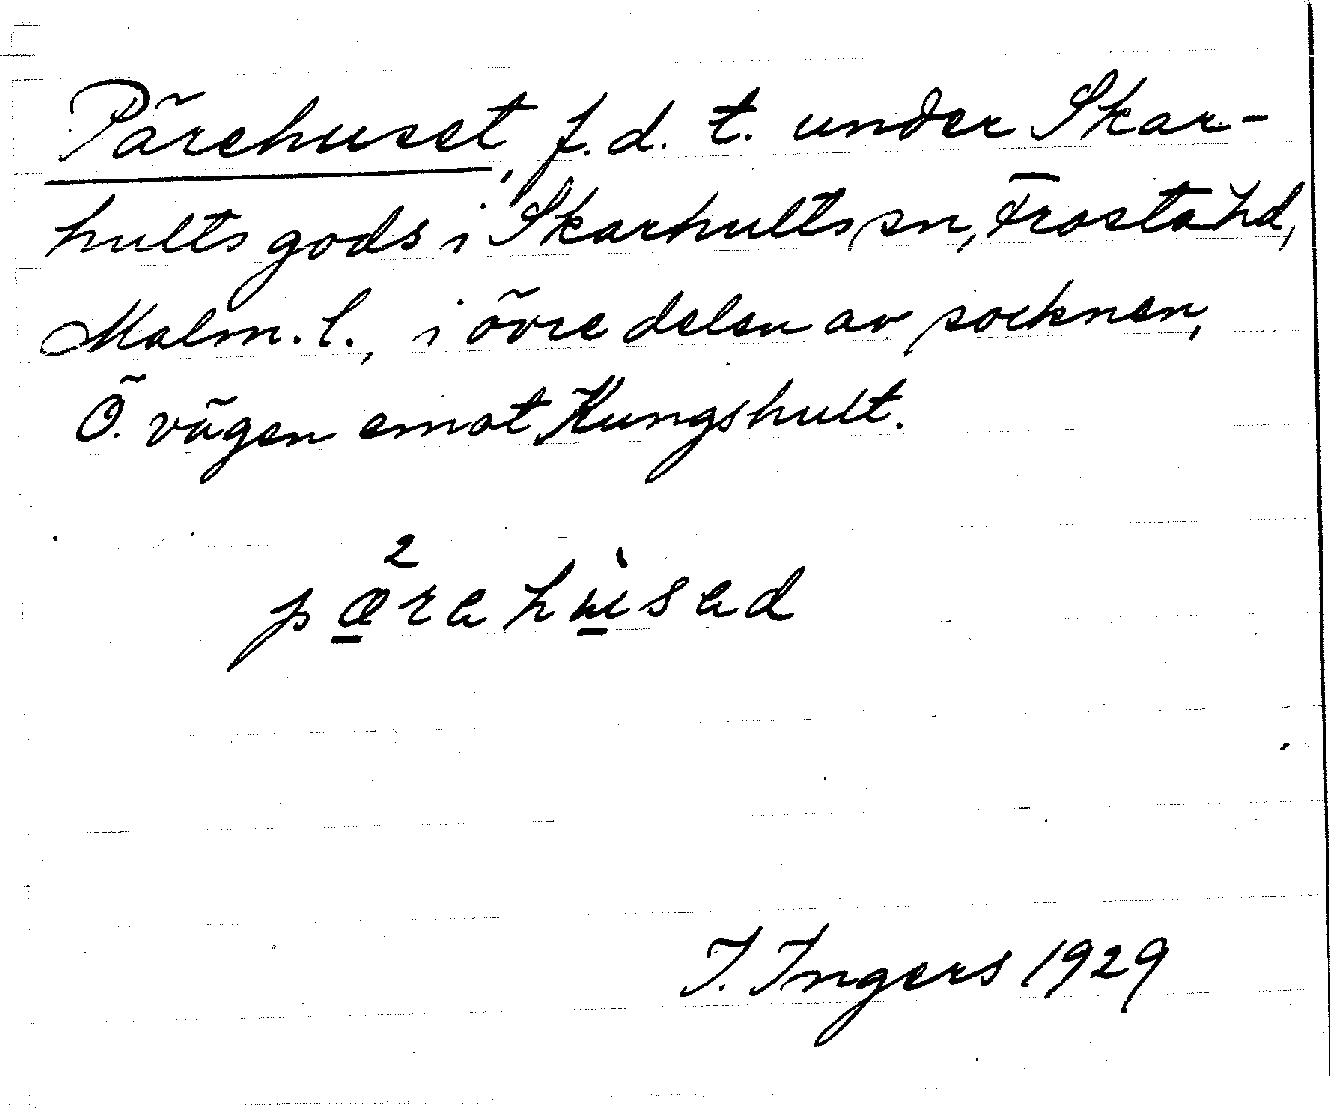 Pärehuset, f.d. t. under Skar-
hults gods i Skarhults sn, Frosta hd,
Malm. l., i övre delen av socknen,
Ö. vägen emot Kungshult.
2
pæ̱rahu̱̇sad
I. Ingers 1929